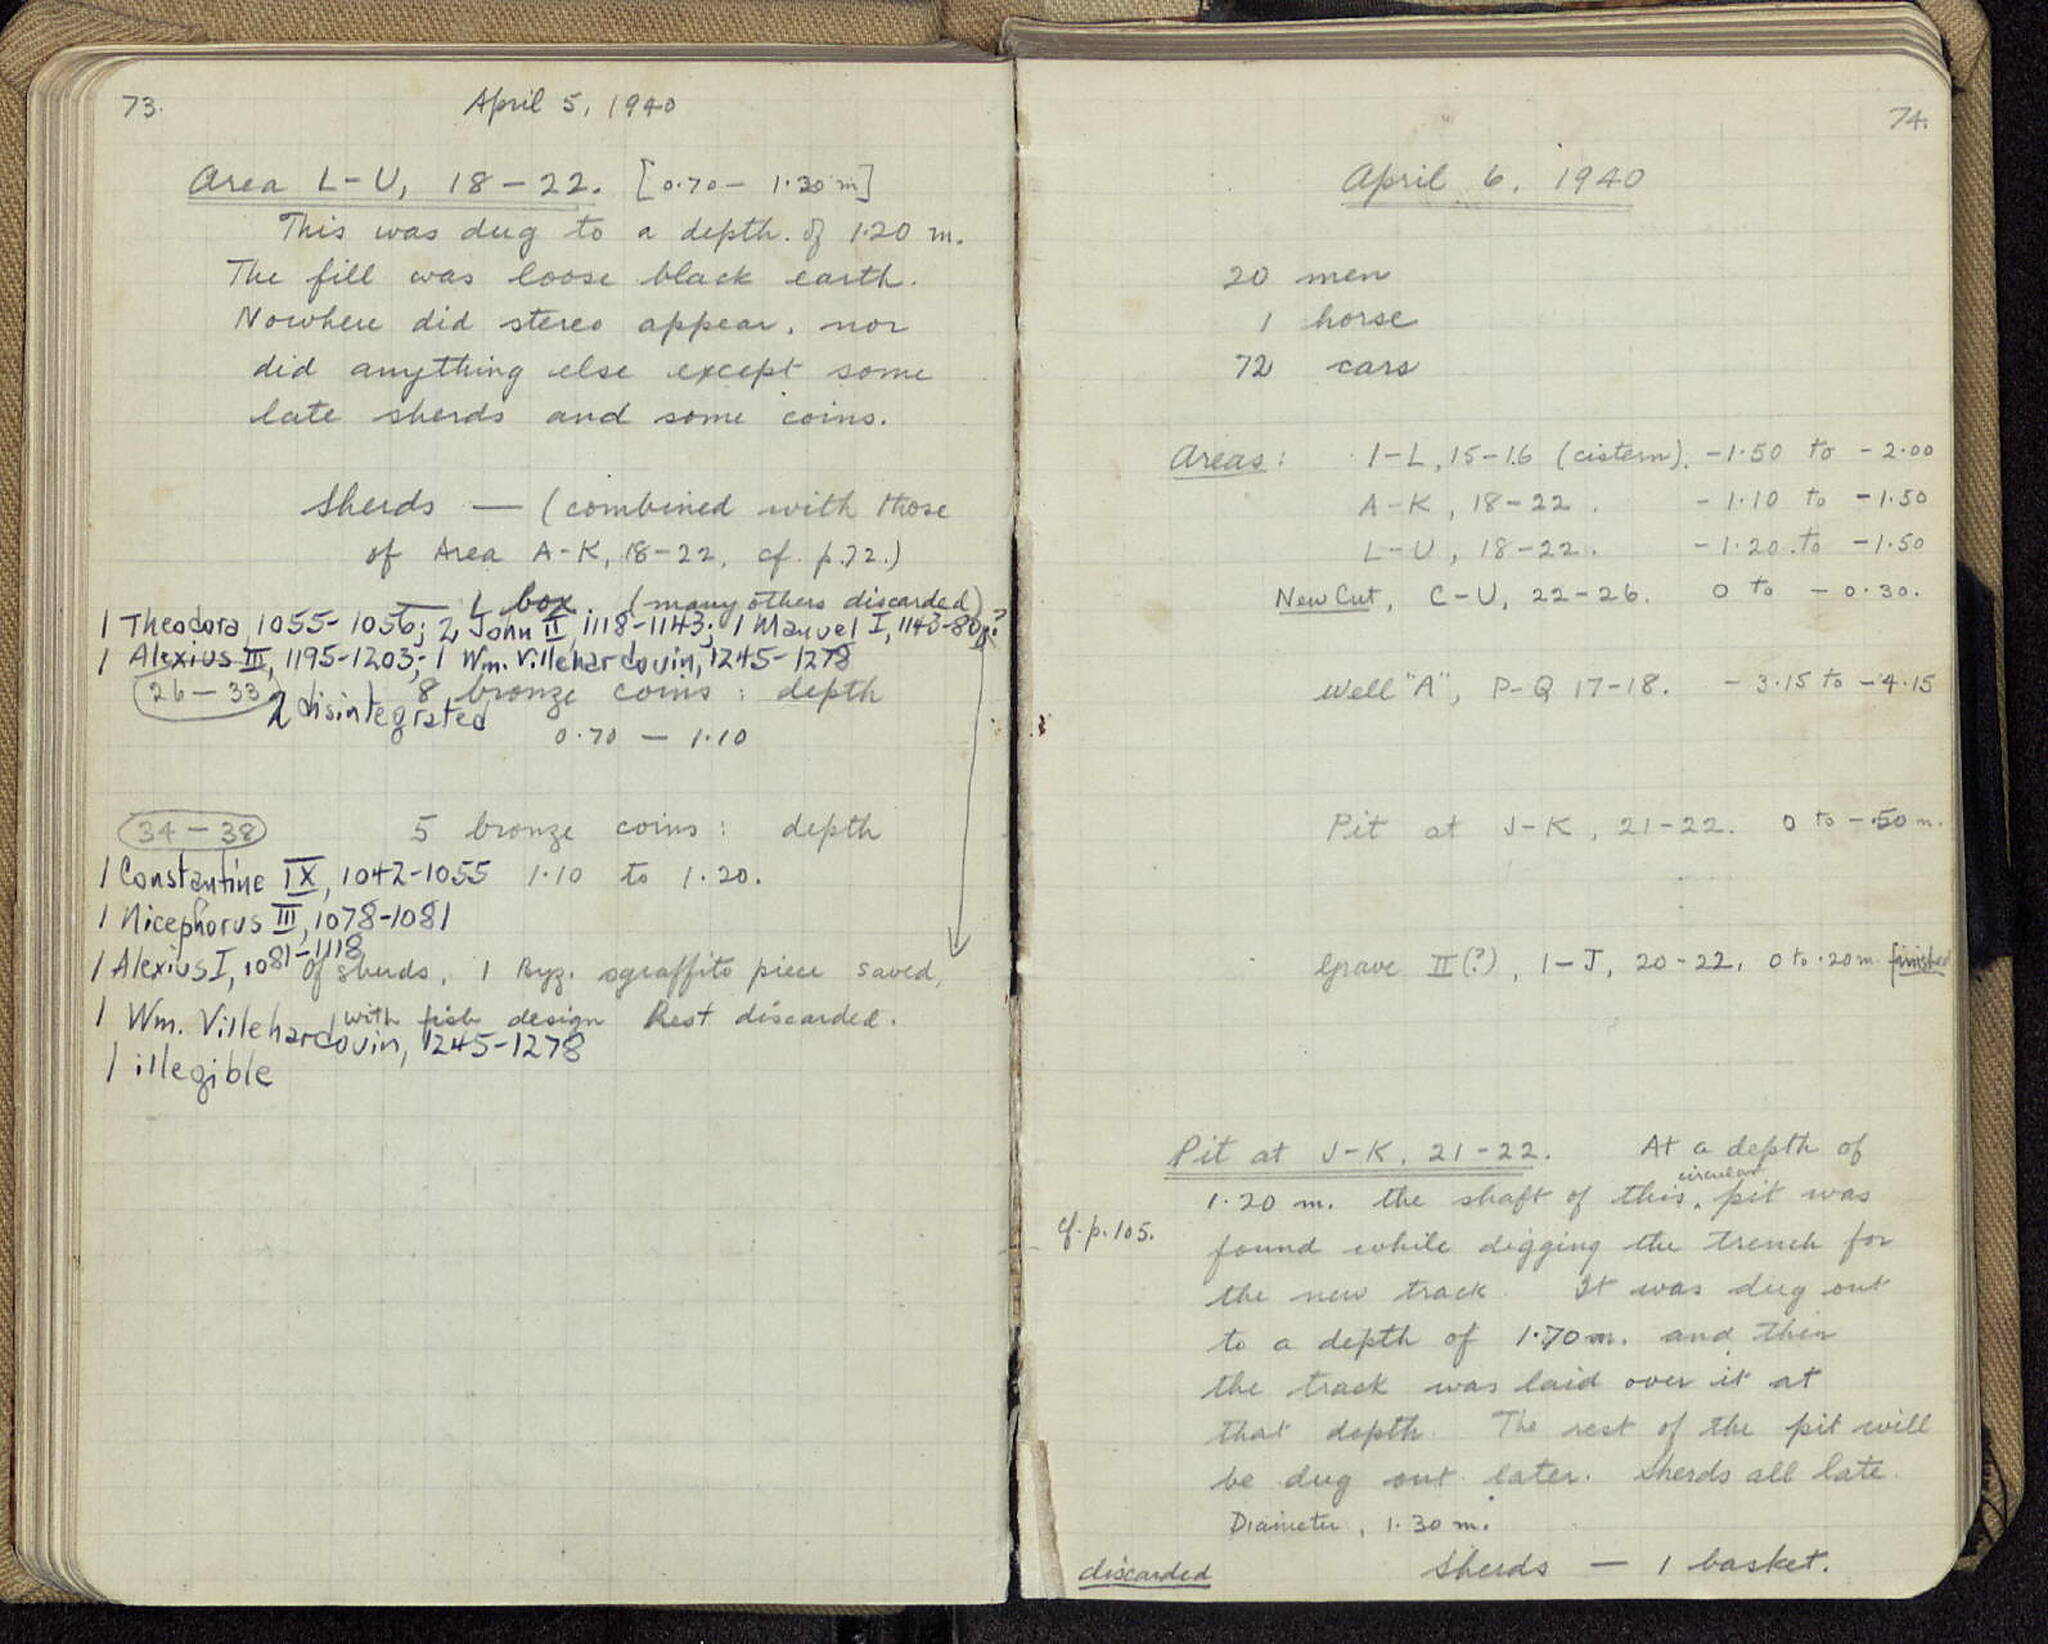 73.
April 5, 1940
Area L-U, 18-22. [0.70 - 1.20 m]
This was dug to a depth of 1.20 m.
The fill was loose black earth.
Nowhere did stereo appear, nor
did anything else except some
late sherds and some coins.
Sherds — (combined with those
of Area A-K, 18-22, cf. p.72.)
— 1 box. (many others discarded)
1 Theodora, 1055-1056; 2 John II, 1118-1143; 1 Manuel I, 1143-80;?
1 Alexius III, 1195-1203; 1 Wm. Villehardouin, 1245-1278
26-33 8 bronze coins: depth
2 disintegrated
0.70 — 1.10
34-38 5 bronze coins: depth
1 Constantine IX, 1042-1055 1.10 to 1.20.
1 Nicephorus III, 1078-1081
1 Alexius I, 1081-1118
Of sherds, 1 Byz. sgraffito piece saved,
with fish design Rest discarded.
1 Wm. Villehardouin, 1245-1278
1 illegible
74.
April 6, 1940
20 men
1 horse
72 cars
Areas: I-L, 15-16 (cistern). -1.50 to -2.00
A-K, 18-22. -1.10 to -1.50
L-U, 18-22. -1.20 to -1.50
New Cut, C-U, 22-26. 0 to -0.30.
Well "A", P-Q 17-18. -3.15 to -4.15
Pit at J-K, 21-22. 0 to -.50 m.
Grave II(?), I-J, 20-22, 0 to .20 m. finished
Pit at J-K, 21-22. At a depth of
1.20 m. the shaft of this circular pit was
cf. p. 105.
found while digging the trench for
the new track. It was dug out
to a depth of 1.70 m. and then
the track was laid over it at
that depth. The rest of the pit will
be dug out later. Sherds all late.
Diameter, 1.30 m.
discarded Sherds — 1 basket.